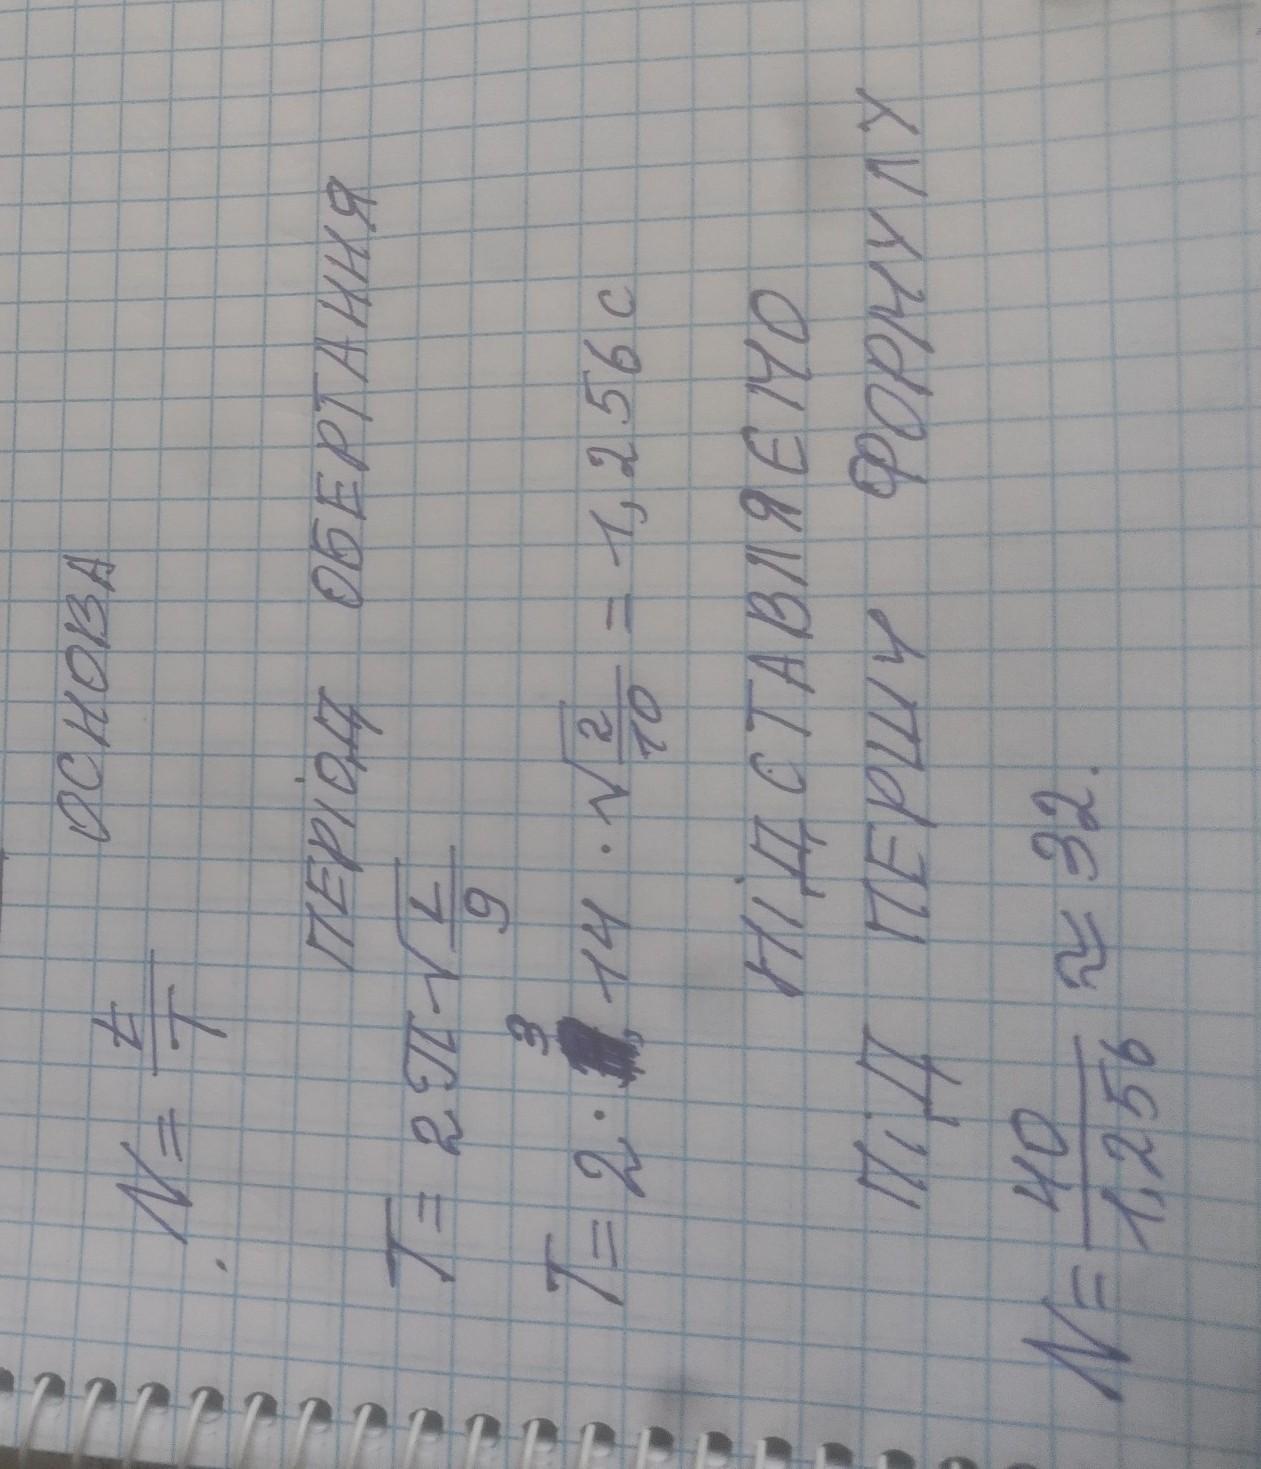 N = t/T ОСНОВА
ПЕРІОД ОБЕРТАННЯ
T = 2π·√(L/g)
T = 2·3,14·√(2/10) = 1,256 с
ПІДСТАВЛЯЄМО
ПІД ПЕРШУ ФОРМУЛУ
N = 40/1,256 ≈ 32.